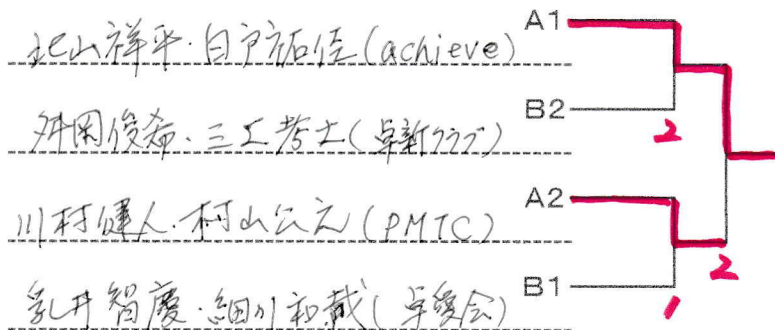 北山祥平・白戸祐佳(achieve) A1
舛岡俊希・三工考士(卓新クラブ) B2
2
川村健人・村山公之(PMTC) A2
2
乳井智慶・細川和哉(卓愛会) B1
1